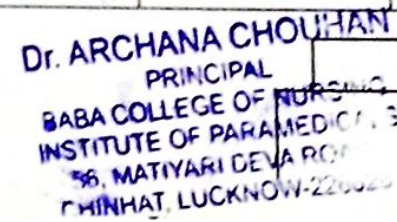 Dr. ARCHANA CHOUHAN
PRINCIPAL
BABA COLLEGE OF NURSING
INSTITUTE OF PARAMEDICAL S
56, MATIYARI DEVA ROAD
CHINHAT, LUCKNOW